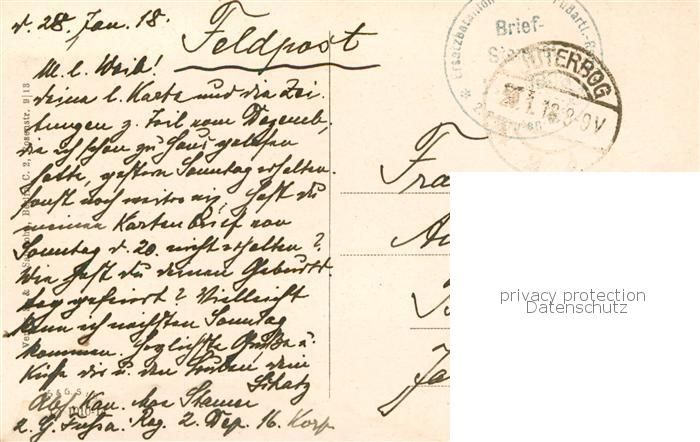 d. 28. Jan. 18.
Feldpost
M. l. Weib!
deine l. Karte und die Zei-
tungen z. Teil vom Dezemb.,
die ich schon zu Haus gelesen
hatte, gestern Sonntag erhalten.
sonst noch weiter nix. Hast du
meinen Kartenbrief von
Sonntag d. 20. nicht erhalten?
Wie hast du deinen Geburts-
tag gefeiert? Vielleicht
kann ich nächsten Sonntag
kommen. Herzlichste Grüße u.
Küsse dir u. den Buben dein
Schatz
Abs. Kan.
2. G. Fussa. Reg. 2. Dep. 16. Korp
Ersatzbataillon Fußartl.-R
Brief-
Stempel
JÜTERBOG
1.18.8-9V
Fra
Rosenstr. 9|13
Berlin C. 2,
privacy protection
Datenschutz